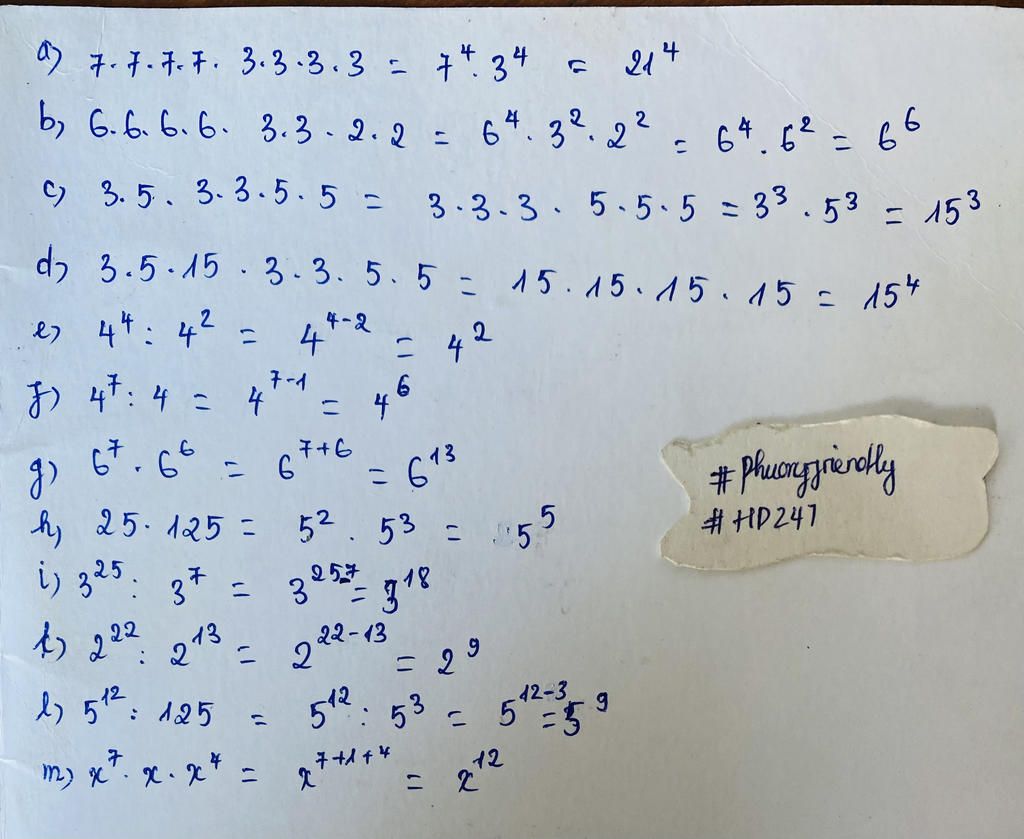 a) 7.7.7.7. 3.3.3.3 = 7⁴. 3⁴ = 21⁴
b) 6.6.6.6. 3.3.2.2 = 6⁴. 3². 2² = 6⁴. 6² = 6⁶
c) 3.5. 3.3.5.5 = 3.3.3. 5.5.5 = 3³. 5³ = 15³
d) 3.5.15. 3.3.5.5 = 15.15.15.15 = 15⁴
e) 4⁴ : 4² = 4⁴⁻² = 4²
f) 4⁷ : 4 = 4⁷⁻¹ = 4⁶
g) 6⁷. 6⁶ = 6⁷⁺⁶ = 6¹³
h) 25. 125 = 5². 5³ = 5⁵
i) 3²⁵ : 3⁷ = 3²⁵⁻⁷ = 3¹⁸
k) 2²² : 2¹³ = 2²²⁻¹³ = 2⁹
l) 5¹² : 125 = 5¹² : 5³ = 5¹²⁻³ = 5⁹
m) x⁷. x. x⁴ = x⁷⁺¹⁺⁴ = x¹²
# Phuongfriendly
# HD247